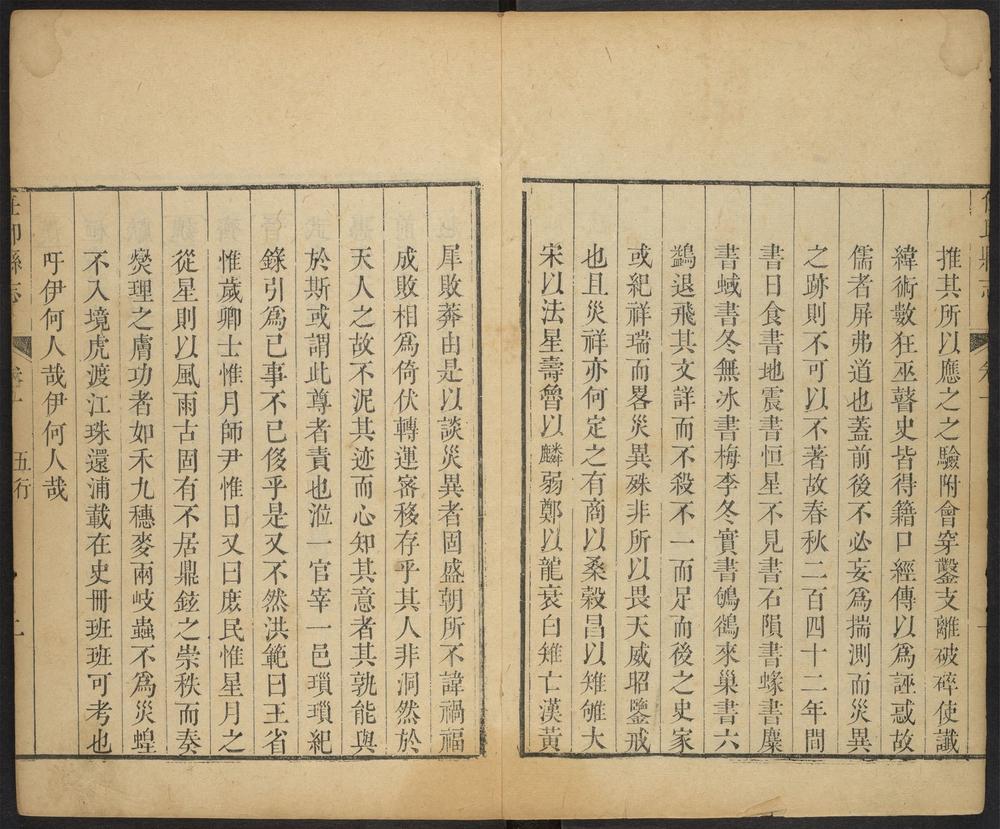 推其所以應之之驗附會穿鑿支離破碎使讖
緯術數狂巫瞽史皆得籍口經傳以爲誣惑故
儒者屏弗道也蓋前後不必妄爲揣測而災異
之跡則不可以不著故春秋二百四十二年間
書日食書地震書恒星不見書石隕書螽書麋
書蜮書冬無冰書梅李冬實書鴝鵒來巢書六
鷁退飛其文詳而不殺不一而足而後之史家
或紀祥瑞而畧災異殊非所以畏天威昭鑒戒
也且災祥亦何定之有商以桑榖昌以雉雊大
宋以法星壽魯以麟弱鄭以龍衰白雉亡漢黃
犀敗莽由是以談災異者固盛朝所不諱禍福
成敗相爲倚伏轉運審移存乎其人非洞然於
天人之故不泥其迹而心知其意者其孰能與
於斯或謂此尊者責也涖一官宰一邑瑣瑣紀
錄引爲己事不已侈乎是又不然洪範曰王省
惟歲卿士惟月師尹惟日又曰庶民惟星月之
從星則以風雨古固有不居鼎鉉之崇秩而奏
爕理之膚功者如禾九穗麥兩岐蟲不爲災蝗
不入境虎渡江珠還浦載在史冊班班可考也
吁伊何人哉伊何人哉
任邱縣志 卷十 五行 二